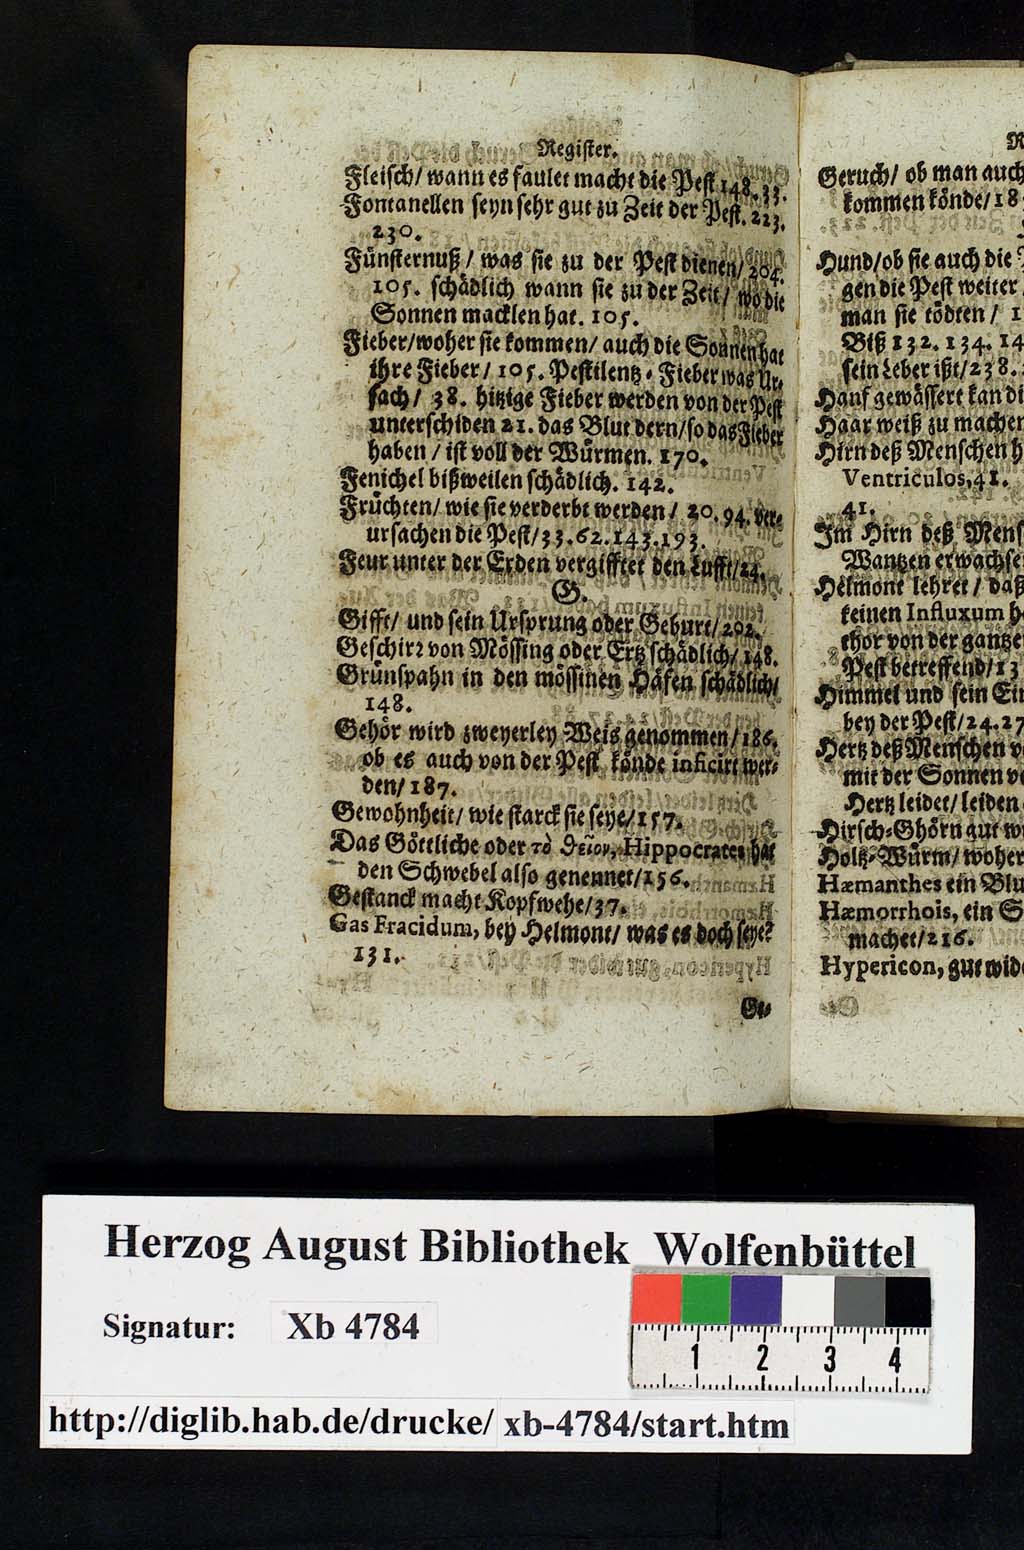 Register.
Fleisch/ wann es faulet macht die Pest 148. 33.
Fontanellen seyn sehr gut zu Zeit der Pest. 223.
230.
Fünsternuß / was sie zu der Pest dienen/ 204.
105. schädlich wann sie zu der Zeit/ wo die
Sonnen macklen hat. 105.
Fieber/woher sie kommen/ auch die Sonnen hat
ihre Fieber/ 105. Pestilentz-Fieber was Ur-
sach/ 38. hitzige Fieber werden von der Pest
unterschiden 21. das Blut dern/so das Fieber
haben / ist voll der Würmen. 170.
Fenichel bißweilen schädlich. 142.
Früchten/ wie sie verderbt werden/ 20. 94. ver-
ursachen die Pest/33.62.143.193.
Feur unter der Erden vergifftet den Lufft/24.
G.
Gifft/ und sein Ursprung oder Geburt/202.
Geschirr von Mössing oder Ertz schädlich/ 148.
Grünspahn in den mössinen Häfen schädlich/
148.
Gehör wird zweyerley Weis genommen/186.
ob es auch von der Pest könde inficirt wer-
den/ 187.
Gewohnheit/ wie starck sie seye/157.
Das Göttliche oder τὸ θεῖον, Hippocrates hat
den Schwebel also genennet/156.
Gestanck macht Kopfwehe/37.
Gas Fracidum, bey Helmont/ was es doch seye?
131.
Ge-
Geruch/ ob man auch
kommen könde/18
Hund/ob sie auch die
gen die Pest weiter
man sie tödten/ 1
Biß 132. 134. 14
sein Leber ißt/238.
Hanf gewässert kan di
Haar weiß zu machen
Hirn deß Menschen h
Ventriculos,41.
41.
Im Hirn deß Mens
Wantzen erwachse
Helmont lehret / daß
keinen Influxum h
thor von der gantze
Pest betreffend/13
Himmel und sein Ein
bey der Pest/24.27
Hertz deß Menschen v
mit der Sonnen v
Hertz leidet/ leiden
Hirsch-Ghörn gut w
Holtz-Würm/ woher
Hæmanthes ein Blu
Hæmorrhois, ein S
machet/216.
Hypericon, gut wid
Herzog August Bibliothek Wolfenbüttel
Signatur: Xb 4784
1 2 3 4
http://diglib.hab.de/drucke/ xb-4784/start.htm